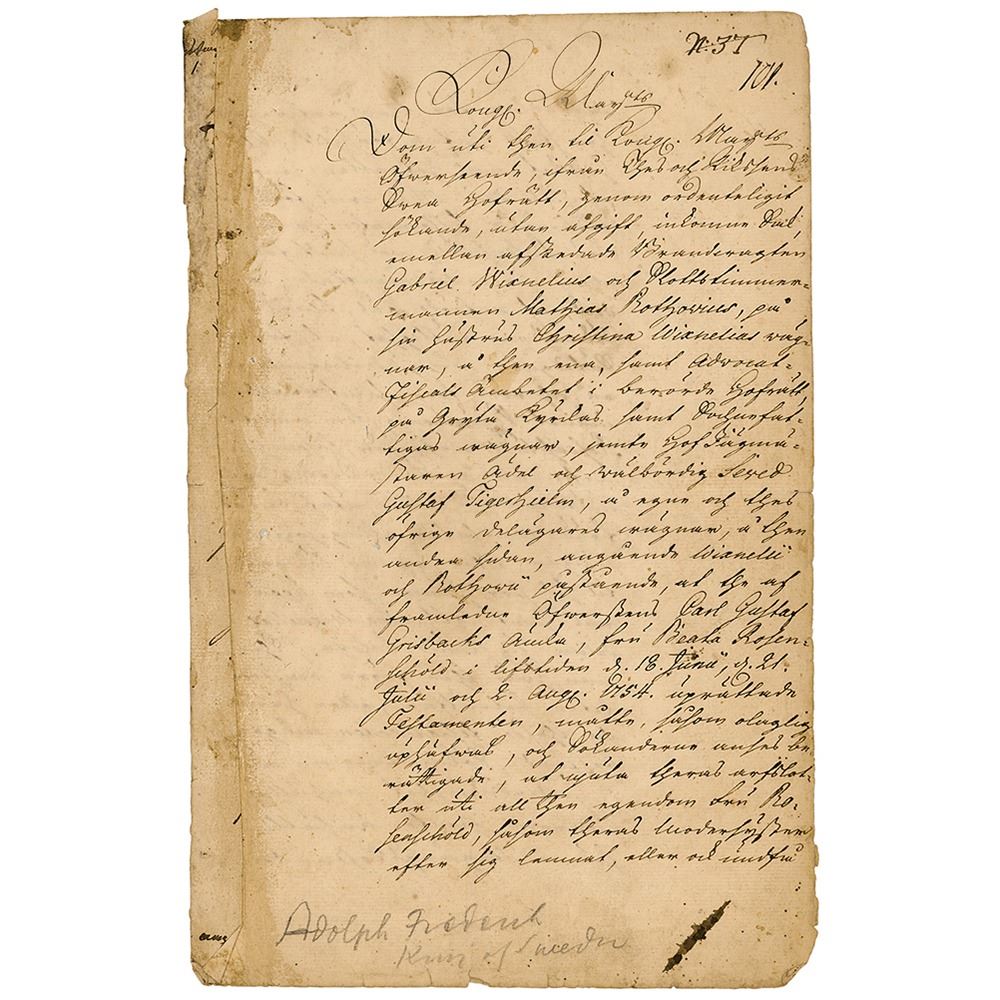 N: 37
101.
Kongl. Maij:tts
Dom uti then til Kongl. Maij:tts
Öfwerseende, ifrån Thes och Riksens
Swea Hofrätt, genom ordenteligit
sökande, utan afgift, inkomne Sak,
emellan afskedade
Gabriel Wixnelius och Slottstimmer-
mannen Mathias Rothovius, på
sin hustrus Christina Wixnelias wäg-
nar, å then ena, samt Advocat-
Fiscals Ämbetet i berörde Hofrätt,
på Gryta Kyrckas samt Sochnefat-
tigas wägnar, jemte Hof Jägmä-
staren Ädel och wälbördig Sewed
Gustaf Tigerhielm, å egne och thes
öfrige Delägares wägnar, å then
andra sidan, angående Wixnelii
och Rothowii påstående, at the af
framledne Öfwerstens Carl Gustaf
Grisbacks Änka, fru Beata Rosen-
schöld i lifstiden d. 18 Junii, d. 21.
Julii och 2. Aug. 1754. uprättade
Testamenten, måtte, såsom olaglig
uphäfwas, och Sökanderne anses be-
rättigade, at niuta theras arfslot-
ter uti all then egendom Fru Ro-
senschöld, såsom theras Modersyster
efter sig lemnat, eller ock undfå
Adolph Frederik
King of Sweden